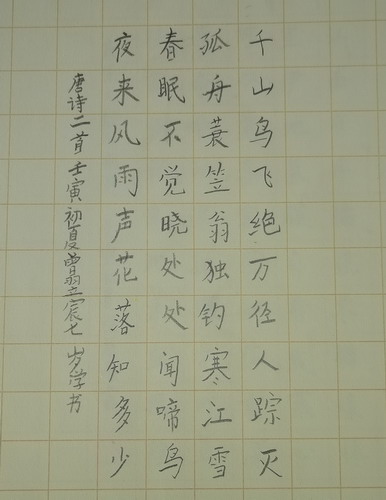 千山鸟飞绝万径人踪灭
孤舟蓑笠翁独钓寒江雪
春眠不觉晓处处闻啼鸟
夜来风雨声花落知多少
唐诗二首壬寅初夏曹翌立宸七岁学书